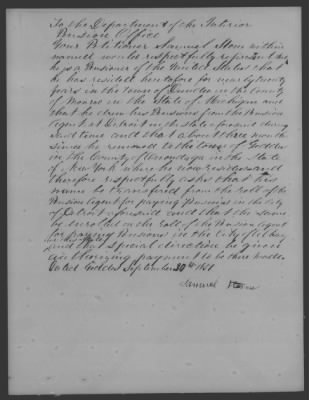 To the Department of the Interior
Pension Office
Your Petitioner Samuel Stone within
named would respectfully represent that
he is a Pensioner of the United States that
he has resided heretofore for nearly twenty
years in the Town of Dundee in the County
of Monroe in the State of Michigan and
that he drew his Pensions from the Pension
Agent at Detroit in the state aforesaid during
said time and that about three months
since he removed to the town of Geddes
in the County of Onondaga in the State
of New York where he now resides and
therefore respectfully asks that his
name be transferred from the Roll of the
Pension Agent for paying Pensions in the City
of Detroit aforesaid and that the same
be enrolled on the Roll of the Pension Agent
for paying Pensions in the City of Albany
and that special direction be given
authorizing payment to be there made
Dated Geddes September 30th
Samuel Stone